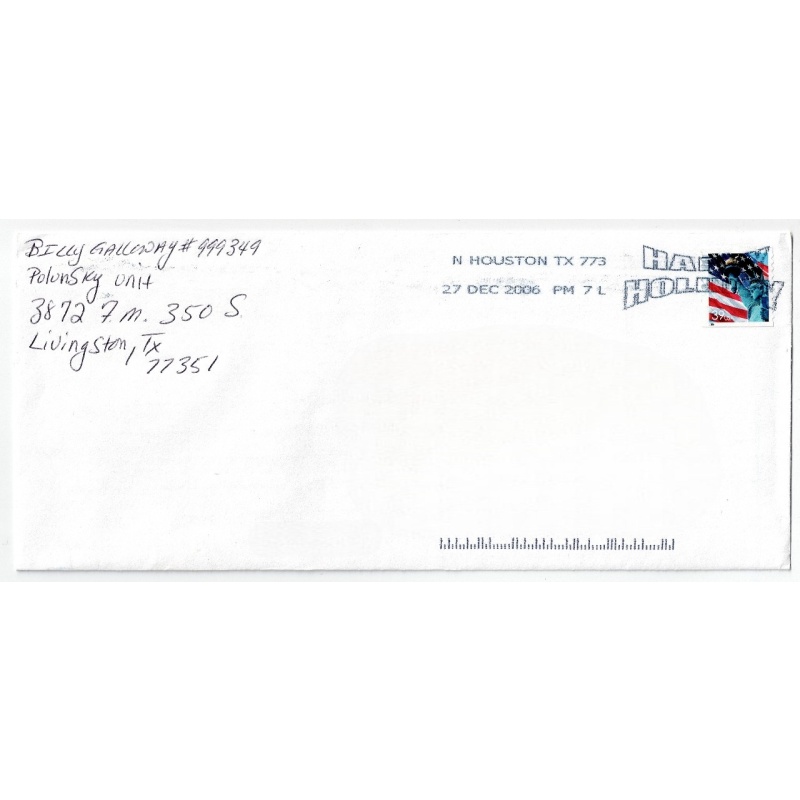 Billy Galloway # 999349
Polunsky Unit
3872 F.M. 350 S.
Livingston, Tx
77351
N HOUSTON TX 773
27 DEC 2006 PM 7 L
39